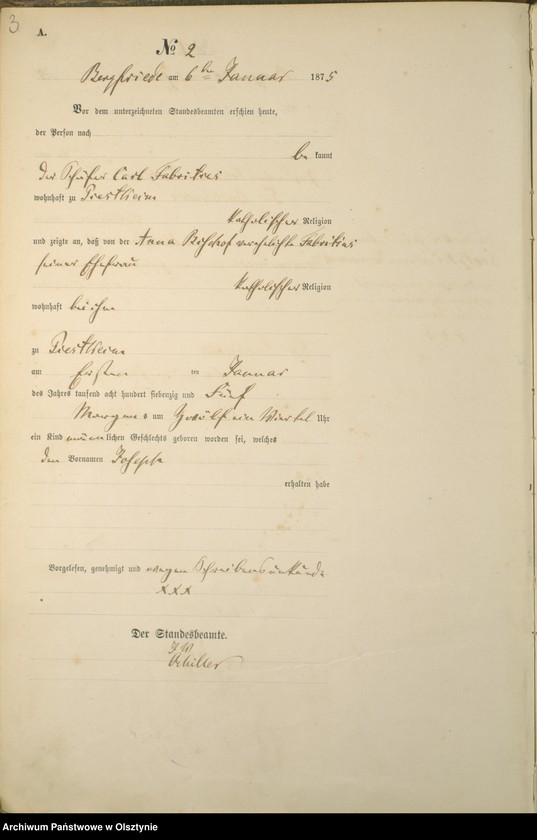 3
A.
No 2
Bergfriede am 6 ten Januar 1875
Vor dem unterzeichneten Standesbeamten erschien heute,
der Person nach
be kannt
der Schäfer Carl Fabritius
wohnhaft zu Piestkeim
katholischer Religion
und zeigte an, daß von der Anna Bischof verehelichte Fabritius
seiner Ehefrau
katholischer Religion
wohnhaft bei ihm
zu Piestkeim
am Ersten ten Januar
des Jahres tausend acht hundert siebenzig und Fünf
Morgens um Zwölf ein Viertel Uhr
ein Kind männlichen Geschlechts geboren worden sei, welches
den Vornamen Joseph
erhalten habe
Vorgelesen, genehmigt und wegen Schreibensunkunde
xxx
Der Standesbeamte.
Schiller
Archiwum Państwowe w Olsztynie